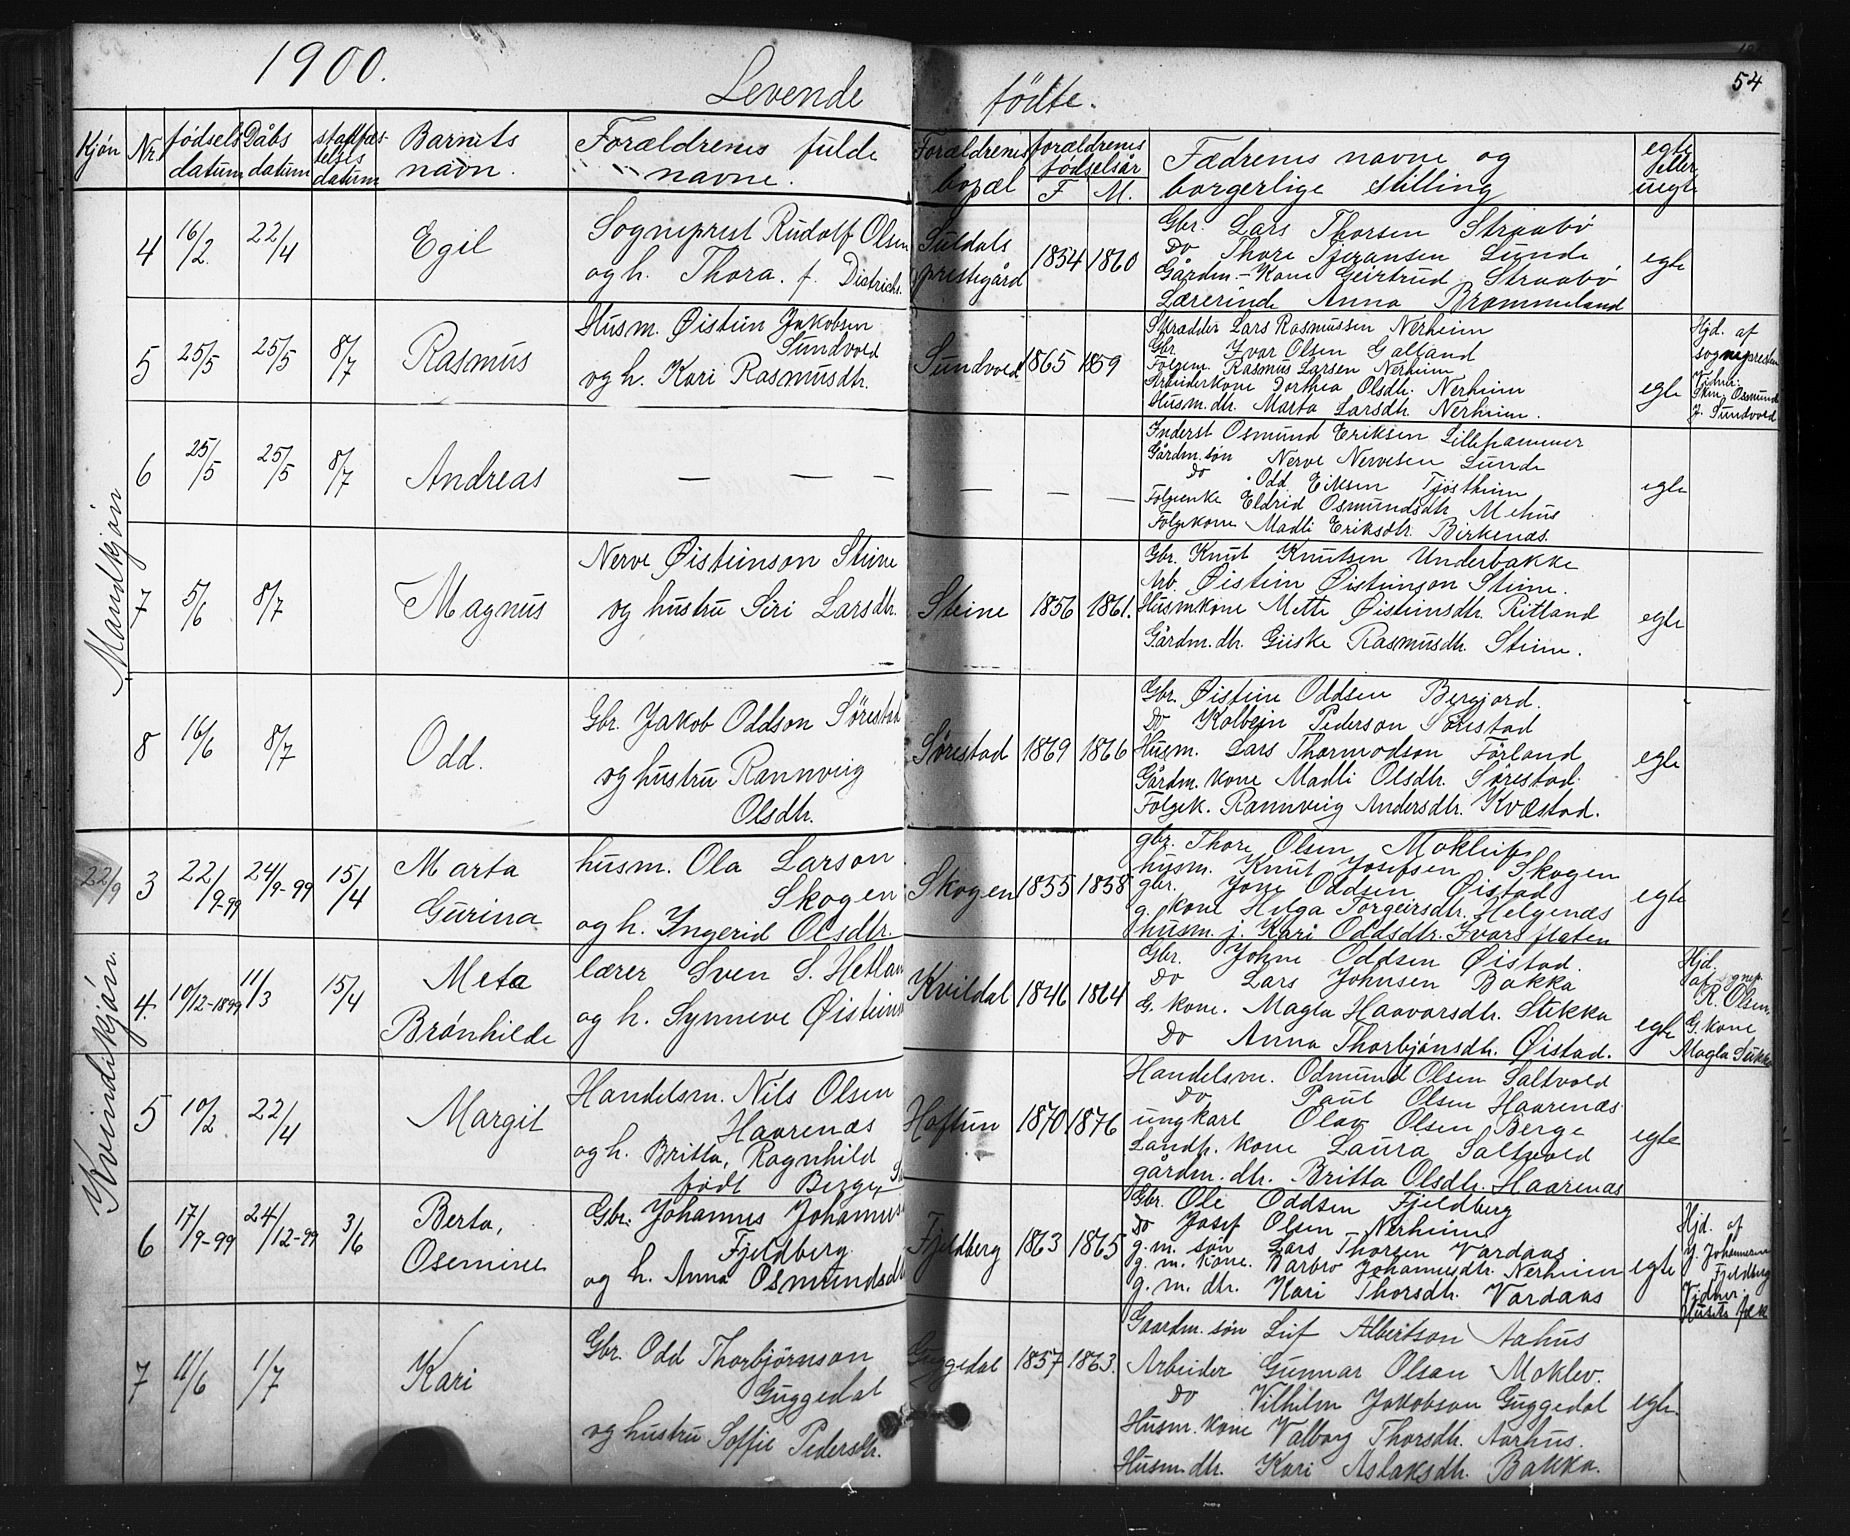 1900.
Levende fødte.
54
Kjøn
Nr.
fødsels datum
Dåbs datum
stadfæstelses datum
Barnets navn.
Forældrenes fulde navne.
Forældrenes bopæl
forældrenes fødselsår
F. M.
Fædrenes navne og borgerlige stilling
egte eller uegte
Mandkjøn
4 16/2 22/4 Egil
Sogneprest Rudolf Olsen
og h. Thora. f. Districhs.
Suldals prestegård
1854 1860
Gbr. Lars Thorsen Straabø
Do Thore Tjeransen Lunde
Gårdm-Kone Geirtrud Straabø
Lærerinde Anna Brommeland
egte
5 25/5 25/5 8/7 Rasmus
Husm. Øistein Jakobsen
Sundvold
og h. Kari Rasmusdtr.
Sundvold 1865 1859
Skrædder Lars Rasmussen Nerheim
Gbr. Ivar Olsen Galland
Følgem. Rasmus Larsen Nerheim
Arbeiderkone Dorthea Olsdtr. Nerheim
Husm. dtr. Marta Larsdtr. Nerheim.
egte
Hjd. af
sognepresten
Vidner:
Osmund
J. Sundvold
6 25/5 25/5 8/7 Andreas
— — —
— — —
Inderst Osmund Eriksen Lillehammer
Gårdm. søn Nerve Nervesen Lunde
Do Odd Eiksen Tjøstheim
Følgeenke Eldrid Osmundsdtr Mehus
Følgekone Madli Eriksdtr. Birkenæs.
egte
7 5/6 8/7 Magnus
Nerve Øisteinson Steine
og hustru Siri Larsdtr.
Steine 1856 1861.
Gbr. Knut Knutsen Underbakke
Arb. Øistein Øisteinson Steine.
Husmkone Mette Øisteinsdtr. Ritland
Gårdm. dtr. Giiske Rasmusdtr. Steine.
egte
8 16/6 8/7 Odd.
Gbr. Jakob Oddson Sørestad
og hustru Rannveig
Olsdtr.
Sørestad 1869 1866
Gbr. Øistine Oddsen Bergjord.
Do Kolbein Pederson Sørestad
Husm. Lars Thormodson Førland
Gårdm. kone Madli Olsdtr. Sørestad.
Følgek. Rannveig Andersdtr. Kvæstad.
egte
22/9
3 22/9-99 24/9-99 15/4 Marta
Gurina
husm. Ola Larson
Skogen
og h. Yngerid Olsdtr.
Skogen 1855 1858
gbr. Thore Olsen Mokleiv
husm. Knut Josefsen Skogen
gbr. Jone Oddsen Øistad
g. kone Helga Torgeirsdtr. Helgenæs
husm. j. Kari Oddsdtr. Ivarsflaten
egte
Kvindekjøn
4. 10/12-1899 11/3 15/4 Meta
Brønhilde
lærer Sven S. Hetlan
og h. Synneve Øistein
Kvildal 1846 1864
Gbr. Johne Oddsen Øistad.
Do Lars Johnsen Bakka
G. kone. Magla Haavarsdtr. Stekka
Do Anna Thorbjønsdtr. Øistad.
egte
Hjd.
af sognep.
R. Olsen.
G. kone
Magla Stekka
5 10/2 22/4 Margit
Handelsm. Nils Olsen
Haarenæs
og h. Britta, Ragnhild
født Berge
Haftun 1870 1876
Handelsm. Odmund Olsen Saltvold
Do Paul Olsen Haarenæs
ungkarl Olav Olsen Berge
Landh. kone Laura Saltvold
gårdm. dtr. Britta Olsdtr. Haarenæs
egte
6 17/9-99 24/12-99 3/6 Berta,
Osemine
Gbr. Johannes Johannese
Fjeldberg
og h. Anna Osmundsdtr
Fjeldberg 1863 1865
Gbr. Ole Oddsen Fjeldberg
Do Josef Olsen Nerheim
g. m. søn Lars Thorsen Vardaas
g. m. kone. Barbro Johannesdtr. Nerheim
g. m. dtr. Kari Thorsdtr. Vardaas
egte
Hjd. af
J. Johannesen
Fjeldberg
Vidner:
Husets folk
7 11/6 1/7 Kari
Gbr. Odd Thorbjørnson
Guggedal
og hustru Soffie Pedersdtr.
Guggedal 1857 1863.
Gaardm. søn Leif Albertson Aahus
Arbeider Gunnar Olsan Moklev.
Do Vilhelm Jakobson Guggedal
Husm. kone Valborg Thorsdtr. Aarhus.
Husm. dtr. Kari Aslaksdtr. Bakka.
egte.